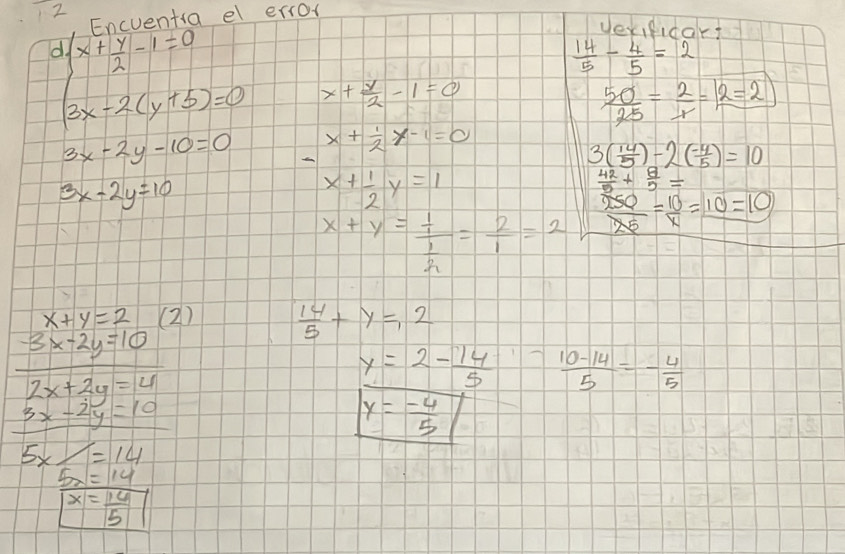 12
Encuentra el error
d) x + y/2 - 1 = 0
3x - 2(y + 5) = 0
3x - 2y - 10 = 0
3x - 2y = 10
x + y/2 - 1 = 0
x + 1/2 y - 1 = 0
x + 1/2 y = 1
x + y = 1/(1/2) = 2/1 = 2
Verificar:
14/5 - 4/5 = 2
50/25 = 2/1 = 2 = 2
3(14/5) - 2(-4/5) = 10
42/5 + 8/5 =
250/25 = 10/1 = 10 = 10
x + y = 2 (2)
3x - 2y = 10
2x + 2y = 4
3x - 2y = 10
5x = 14
5x = 14
x = 14/5
14/5 + y = 2
y = 2 - 14/5
10-14/5 = -4/5
y = -4/5